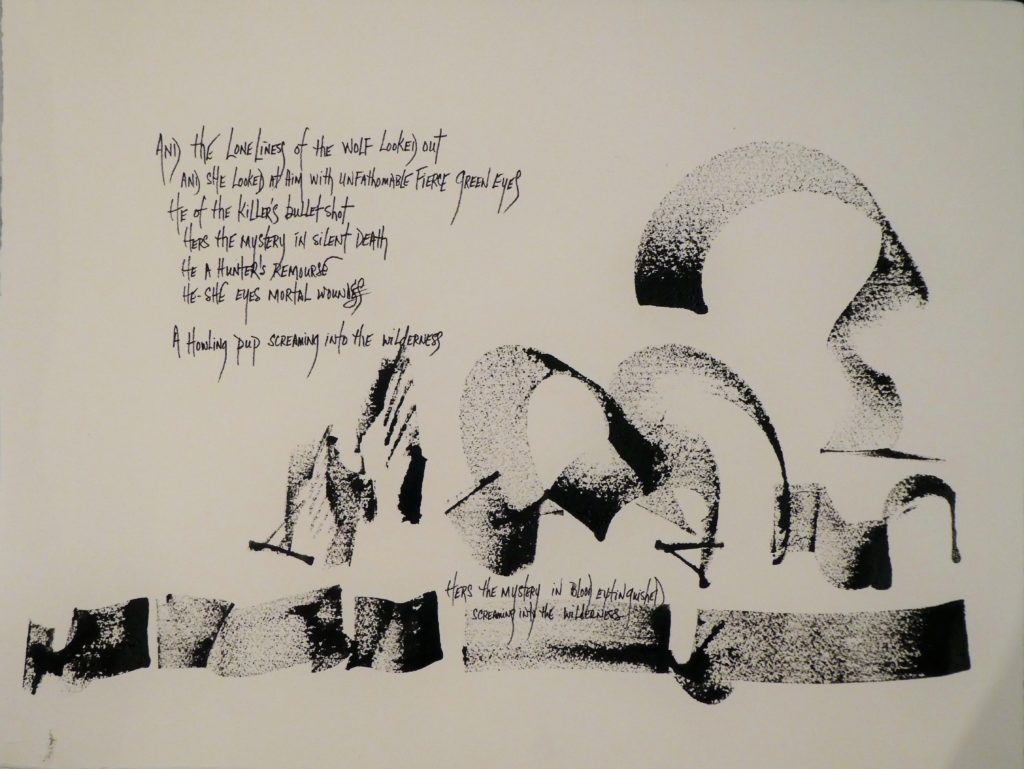 AND the LONELINESS of the WOLF LOOKED out
AND SHE LOOKED At HIM WITH UNFATHOMABLE FIERCE GREEN EYES
HE of the KILLER'S bullet shot
HERS the MYSTERY in SILENT DEATH
HE A HUNTER'S REMOURSE
HE-SHE EYES MORTAL WOUNDS
A HOWLING PUP SCREAMING INTO the WILDERNESS
HERS the MYSTERY IN BLOOD EXTINGUISHED
SCREAMING INTO the WILDERNESS